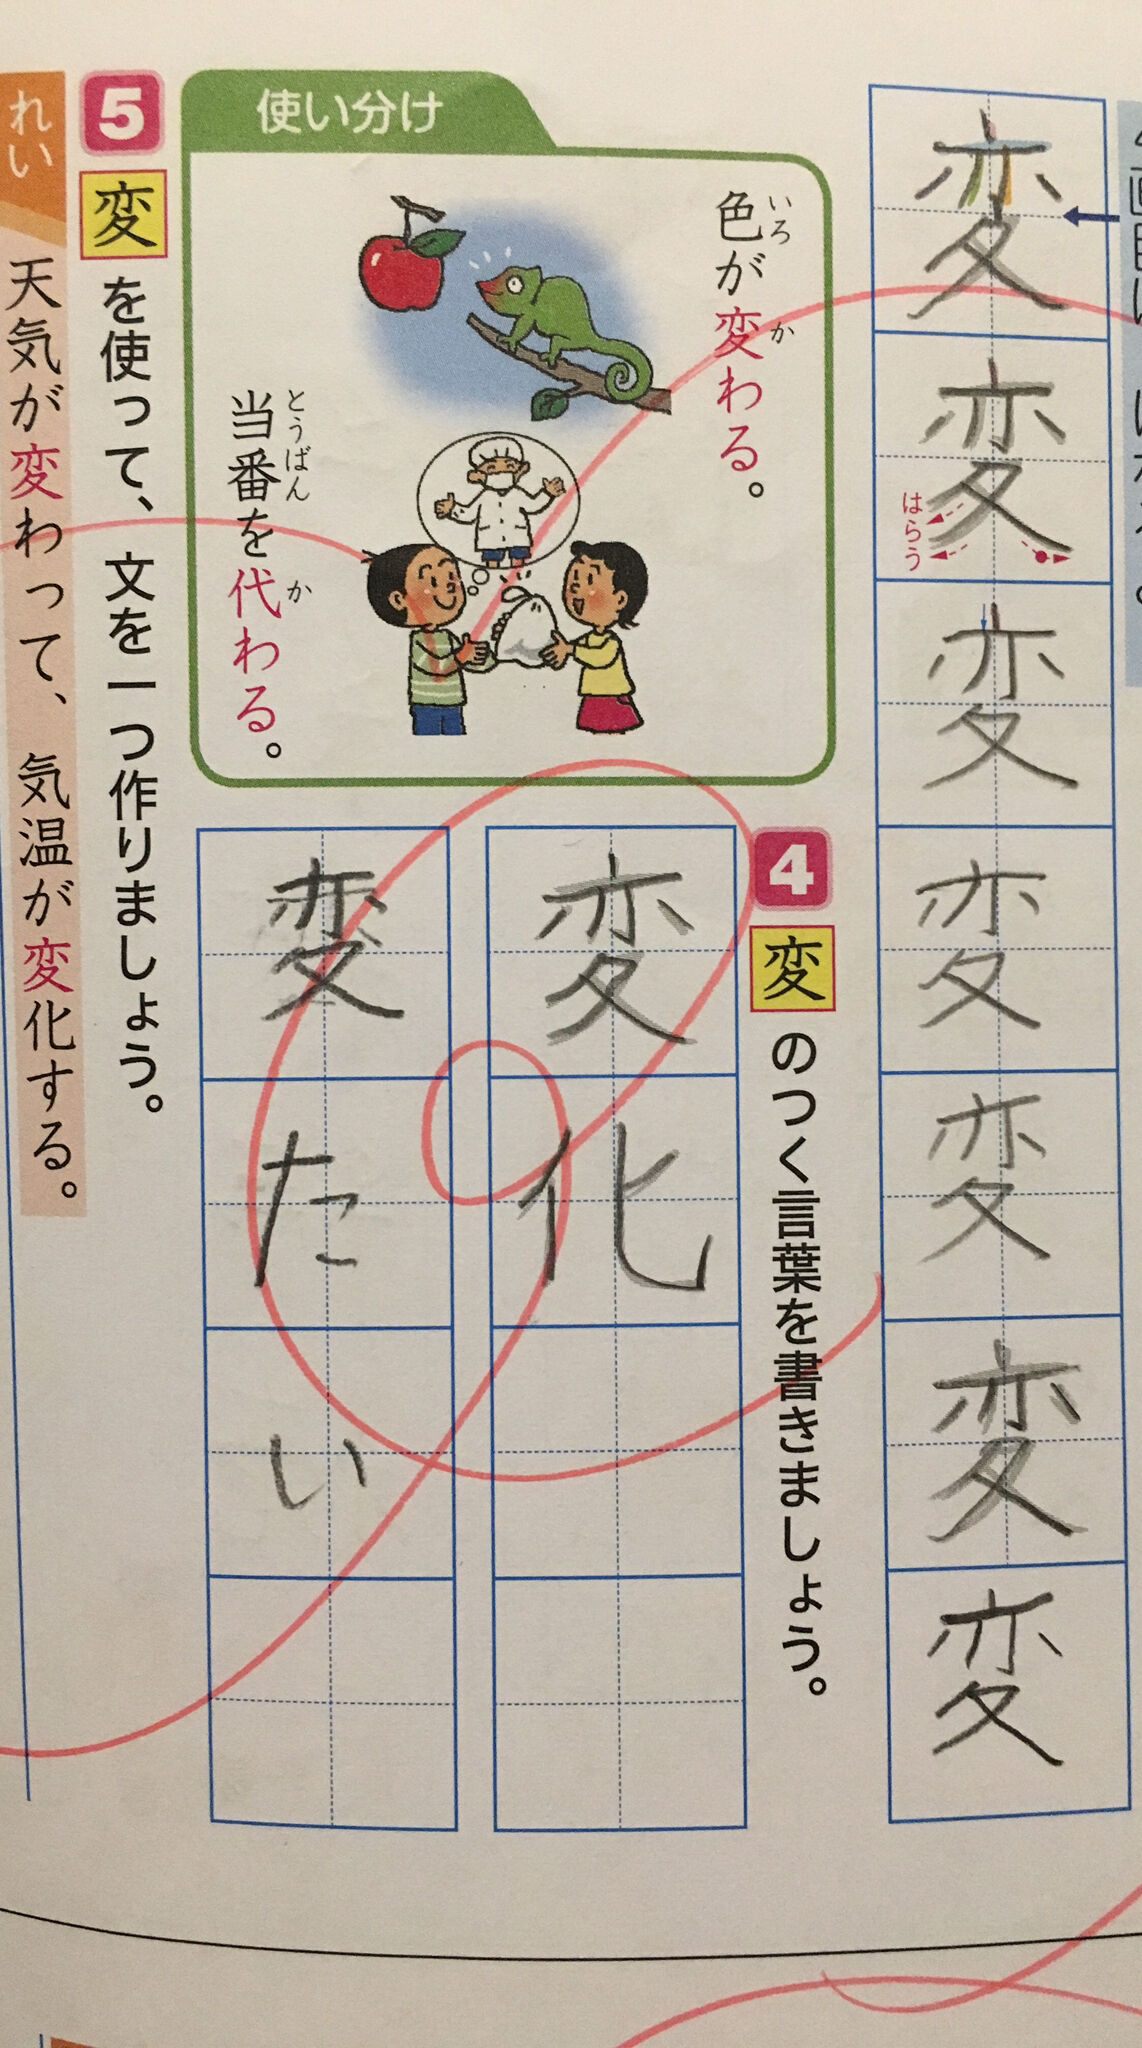 変
変
変
変
変
変
変
はらう
4
変のつく言葉を書きましょう。
変化
変たい
使い分け
色が変わる。
いろ
か
当番を代わる。
とうばん
か
5
変を使って、文を一つ作りましょう。
れい
天気が変わって、気温が変化する。